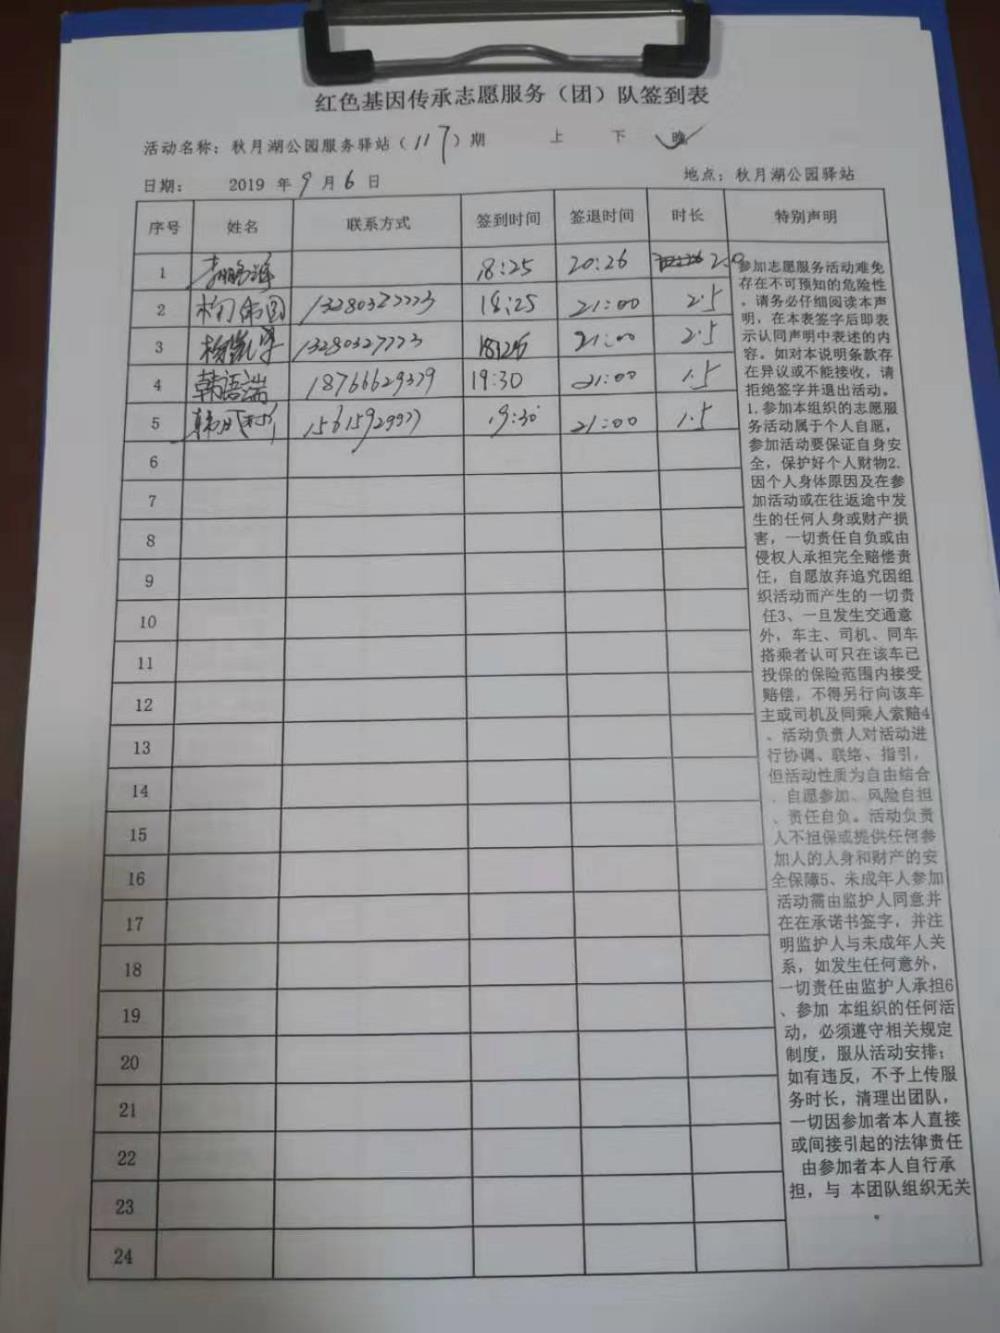 红色基因传承志愿服务（团）队签到表
活动名称：秋月湖公园服务驿站（117）期 上 下 晚
日期： 2019 年 9 月 6 日 地点：秋月湖公园驿站
序号 姓名 联系方式 签到时间 签退时间 时长 特别声明
1 18:25 20:26 2.0
2 13280327773 18:25 21:00 2.5
3 13280327773 18:25 21:00 2.5
4 韩语端 18766629379 19:30 21:00 1.5
5 19:30 21:00 1.5
6
7
8
9
10
11
12
13
14
15
16
17
18
19
20
21
22
23
24
参加志愿服务活动难免
存在不可预知的危险性
，请务必仔细阅读本声
明，在本表签字后即表
示认同声明中表述的内
容。如对本说明条款存
在异议或不能接收，请
拒绝签字并退出活动。
1.参加本组织的志愿服
务活动属于个人自愿，
参加活动要保证自身安
全，保护好个人财物2.
因个人身体原因及在参
加活动或在往返途中发
生的任何人身或财产损
害，一切责任自负或由
侵权人承担完全赔偿责
任，自愿放弃追究因组
织活动而产生的一切责
任3、一旦发生交通意
外，车主、司机、同车
搭乘者认可只在该车已
投保的保险范围内接受
赔偿，不得另行向该车
主或司机及同乘人索赔4
、活动负责人对活动进
行协调、联络、指引，
但活动性质为自由结合
、自愿参加、风险自担
、责任自负。活动负责
人不担保或提供任何参
加人的人身和财产的安
全保障5、未成年人参加
活动需由监护人同意并
在在承诺书签字，并注
明监护人与未成年人关
系，如发生任何意外，
一切责任由监护人承担6
、参加 本组织的任何活
动，必须遵守相关规定
制度，服从活动安排；
如有违反，不予上传服
务时长，清理出团队，
一切因参加者本人直接
或间接引起的法律责任
由参加者本人自行承
担，与 本团队组织无关